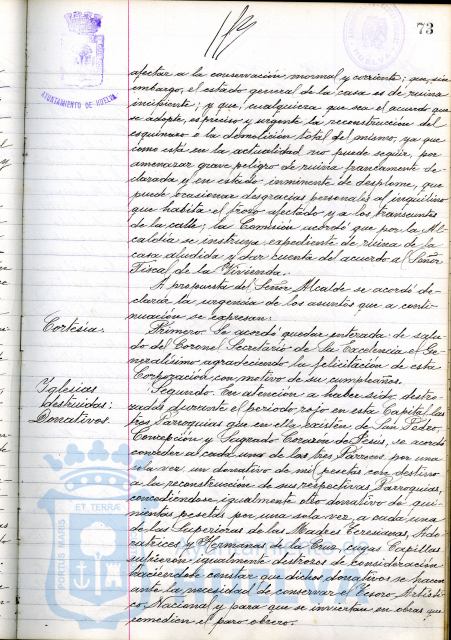 73
AYUNTAMIENTO DE HUELVA
HUELVA
afectar a la conservación normal y corriente; que, sin
embargo, el estado general de la casa es de ruina
incipiente; y que, cualquiera que sea el acuerdo que
se adopte, es preciso y urgente la reconstrucción del
esquinazo o la demolición total del mismo, ya que
como está en la actualidad no puede seguir, por
amenazar grave peligro de ruina francamente de-
clarada y en estado inminente de desplome, que
puede ocasionar desgracias personales al inquilino
que habita el trozo afectado y a los transeuntes
de la calle; la Comisión acordó que por la Al-
caldía se instruya expediente de ruina de la
casa aludida y dar cuenta del acuerdo al Señor
Fiscal de la Vivienda.
A propuesta del Señor Alcalde se acordó de-
clarar la urgencia de los asuntos que a conti-
nuación se expresan:
Cortesía.
Primero. Se acordó quedar enterada de salu-
do del Coronel Secretario de Su Excelencia el Ge-
neralísimo agradeciendo la felicitación de esta
Corporación con motivo de su cumpleaños.
Iglesias
destruidas:
Donativos.
Segundo. En atención a haber sido destro-
zadas durante el periodo rojo en esta Capital las
tres Parroquias que en ella existen de San Pedro,
Concepción y Sagrado Corazón de Jesús, se acordó
conceder al cada uno de los tres Párrocos por una
sola vez un donativo de mil pesetas con destino
a la reconstrucción de sus respectivas Parroquias,
concediéndose igualmente otro donativo de qui-
nientas pesetas por una sola vez, a cada una
de las Superioras de las Madres Teresianas, Ado-
ratrices y Hermanas de la Cruz, cuyas Capillas
sufrieron igualmente destrozos de consideración
haciéndose constar que dichos donativos se hacen
ante la necesidad de conservar el Tesoro Artísti-
co Nacional y para que se inviertan en obras que
remedien el paro obrero.
PORTUS MARIS
ET TERRÆ